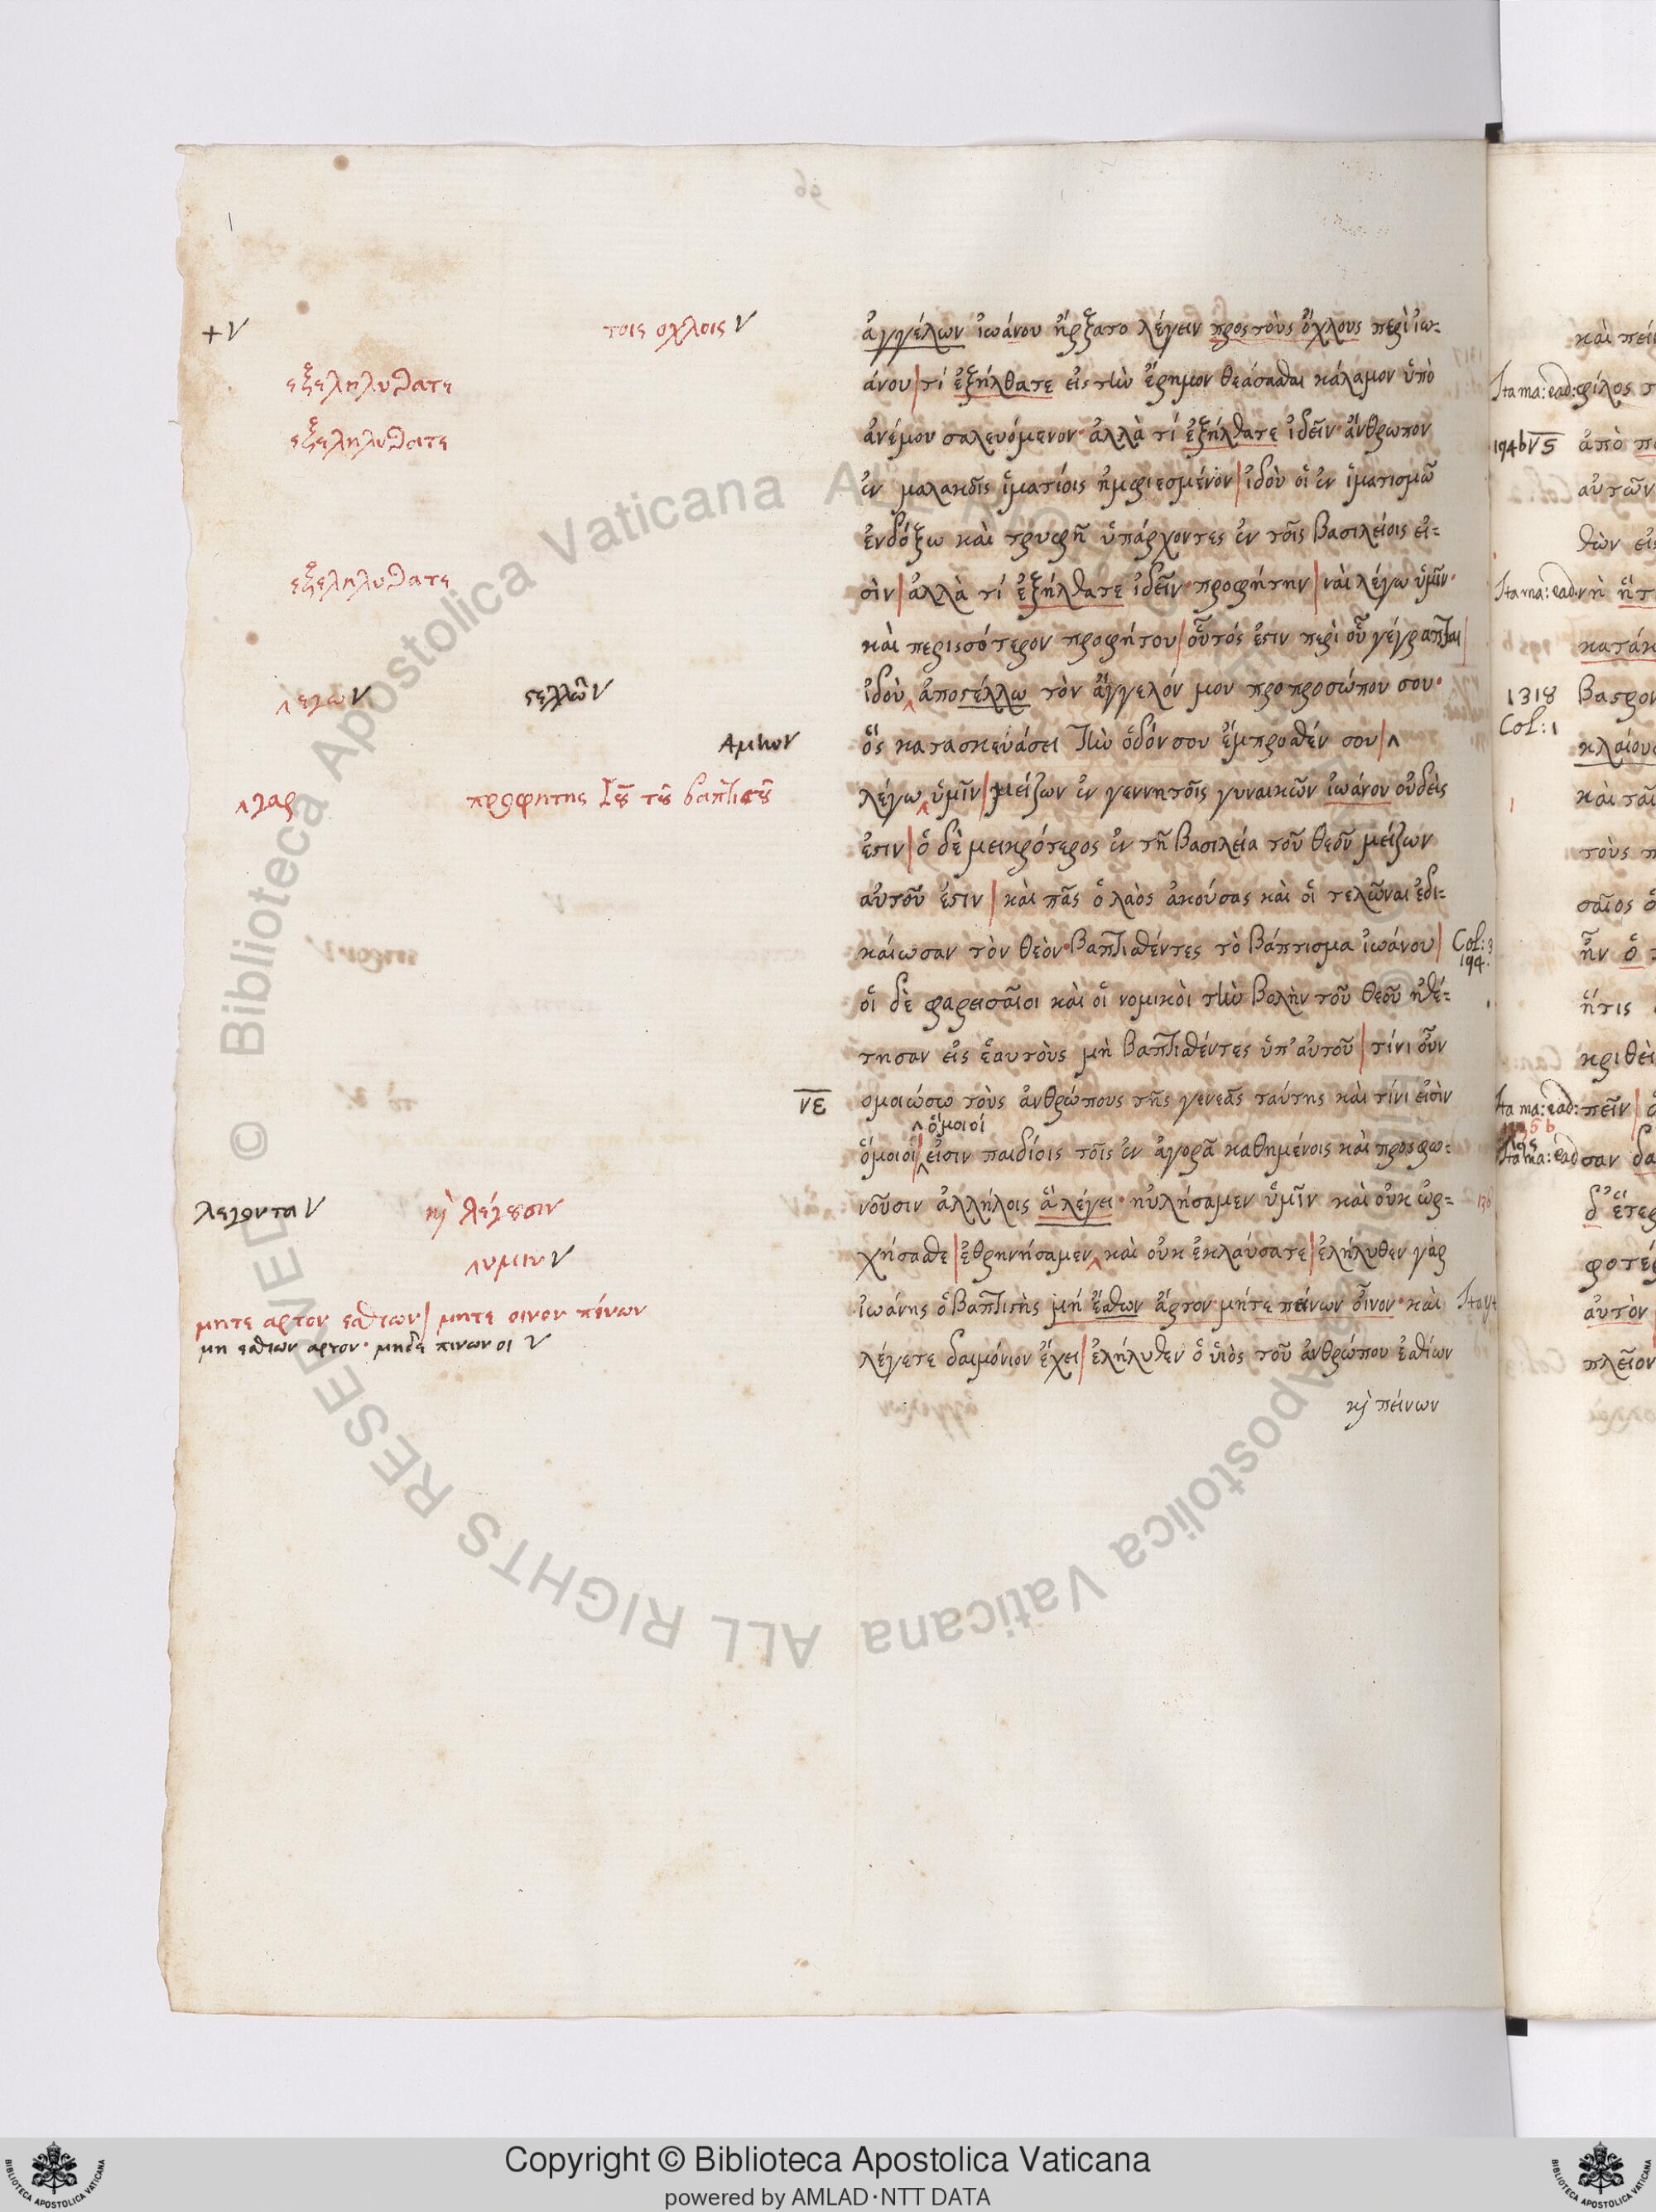 +V
τοις οχλοις V
ἀγγέλων ἰωάνου ἤρξατο λέγειν προς τοὺς ὄχλους περὶ ἰω-
εξεληλυθατε
άνου | τί ἐξήλθατε εἰς τὴν ἔρημον θεάσασθαι κάλαμον ὑπὸ
εξεληλυθατε
ἀνέμου σαλευόμενον· ἀλλὰ τί ἐξήλθατε ἰδεῖν· ἄνθρωπον
ἐν μαλακοῖς ἱματίοις ἠμφιεσμένον | ἰδοὺ οἱ ἐν ἱματισμῶ
ἐνδόξω καὶ τρυφῆ ὑπάρχοντες ἐν τοῖς βασιλείοις εἰ-
εξεληλυθατε
σὶν | ἀλλὰ τί ἐξήλθατε ἰδεῖν· προφήτην | ναὶ λέγω ὑμῖν·
καὶ περισσότερον προφήτου | οὗτός ἐστιν περὶ οὗ γέγραπται |
^ εγω V
στελλῶ V
ἰδοὺ ^ ἀποστέλλω τὸν ἄγγελόν μου προ προσώπου σου·
Αμην V
ὅς κατασκευάσει τὴν ὁδόν σου ἔμπροσθέν σου | ^
^ γαρ
προφητης Ιου του βαπτιστου
λέγω ^ ὑμῖν | μείζων ἐν γεννητοῖς γυναικῶν ἰωάνου οὐδεὶς
ἐστιν | ὁ δὲ μεικρότερος ἐν τῆ βασιλεία τοῦ θεοῦ μείζων
αὐτοῦ ἐστιν | καὶ πᾶς ὁ λαὸς ἀκούσας καὶ οἱ τελῶναι ἐδι-
καίωσαν τὸν θεὸν· βαπτισθέντες τὸ βάπτισμα ἰωάνου | Col: 3
194.
οἱ δὲ φαρεισαῖοι καὶ οἱ νομικοὶ τὴν βολὴν τοῦ θεοῦ ἠθέ-
τησαν εἰς ἑαυτοὺς μὴ βαπτισθέντες ὑπ' αὐτοῦ | τίνι οὖν
νε
ομοιώσω τοὺς ἀνθρώπους τῆς γενεᾶς ταύτης καὶ τίνι εἰσὶν
^ ὅμοιοί
ὅμοιοί | ^ εἰσιν παιδίοις τοῖς ἐν ἀγορᾶ καθημένοις καὶ προσφω-
λεγοντα V
κὶ λέγουσιν
νοῦσιν ἀλλήλοις ἃ λέγει· ηὐλήσαμεν ὑμῖν καὶ οὐκ ὠρ-
^ υμιν V
χήσασθε | ἐθρηνήσαμεν ^ καὶ οὐκ ἐκλαύσατε | ἐλήλυθεν γὰρ
μητε αρτον εσθιων | μητε οινον πίνων
ἰωάνης ὁ βαπτιστὴς μή ἔσθων ἄρτον· μήτε πείνων οἶνον· καὶ
μη εσθιων αρτον· μηδε πινων οι V
λέγετε δαιμόνιον ἔχει | ἐλήλυθεν ὁ ὑιὸς τοῦ ἀνθρώπου ἐσθίων
κὶ πείνων
Ita ma: ead: φίλος τ
194 b νς ἀπὸ
αὐτῶν
Ita ma: ead.
1318
Col: 1
κλαίους
τοὺς
ἦν ὁ
ἥτις
κριθεὶ
Ita ma: ead: πεῖν |
Ita ma: ead σαν δα
δ' ἕτερ
φοτέ
αὐτὸν
πλεῖον
Copyright © Biblioteca Apostolica Vaticana
powered by AMLAD·NTT DATA
© Biblioteca Apostolica Vaticana ALL RIGHTS RESERVED